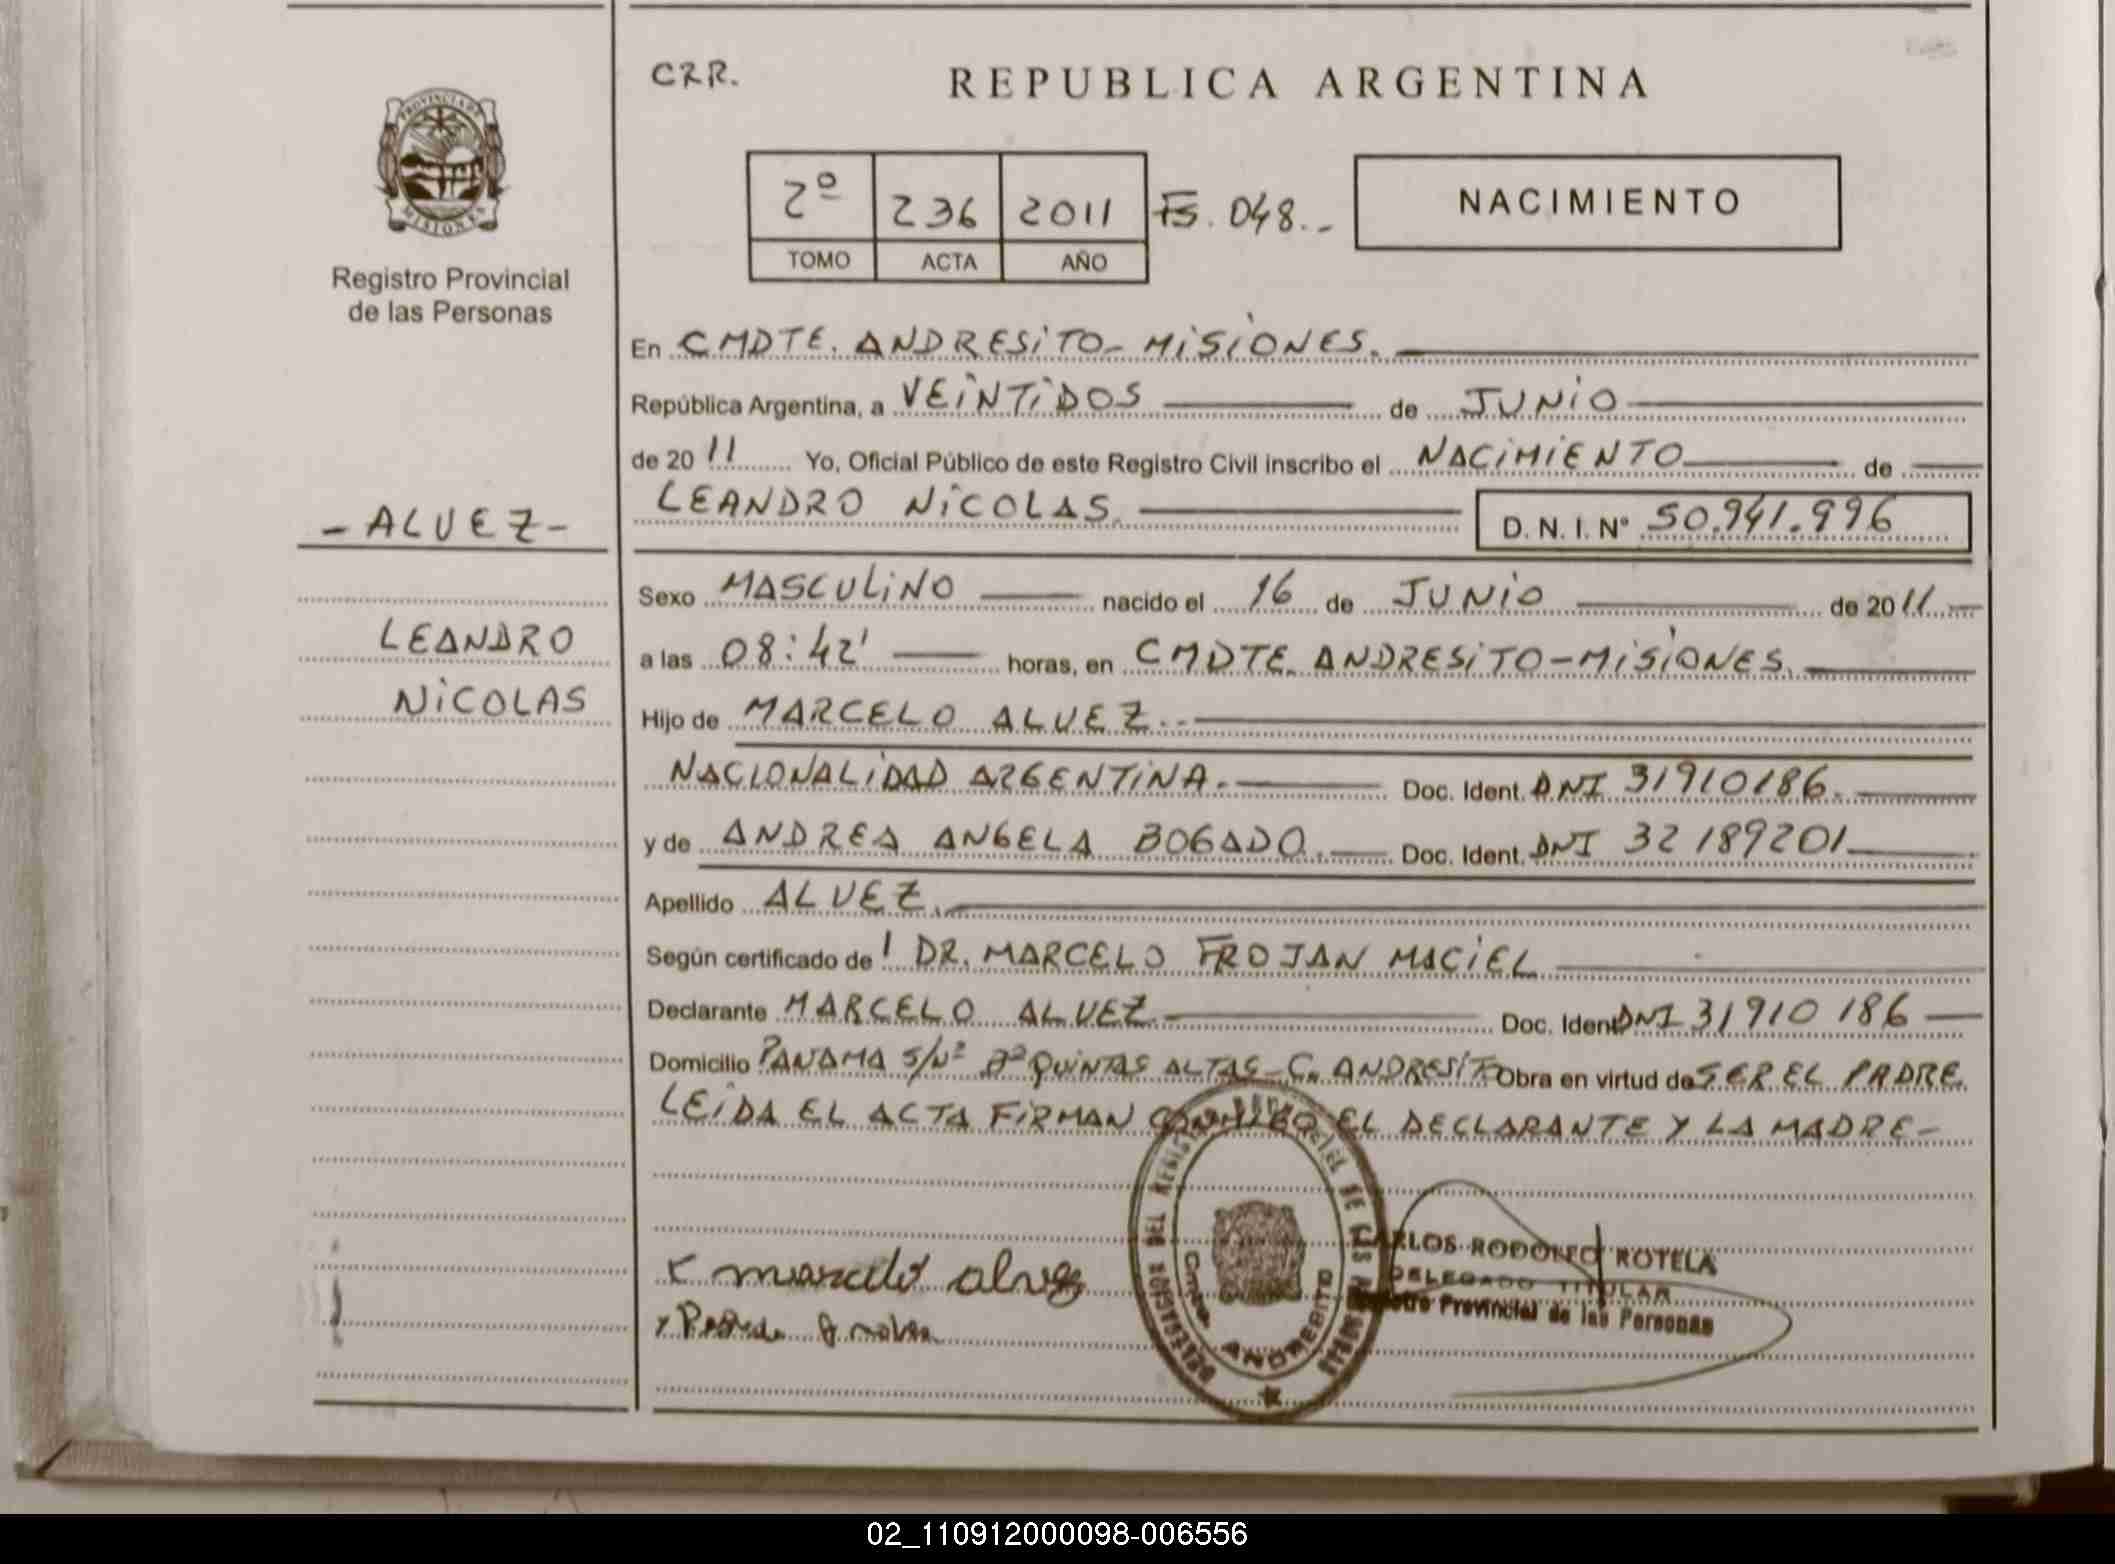 CRR.
REPUBLICA ARGENTINA
PROVINCIA DE
MISIONES
Registro Provincial
de las Personas
2º 236 2011 Fs. 048.-
TOMO ACTA AÑO
NACIMIENTO
En CMDTE. ANDRESITO- MISIONES.
República Argentina, a VEINTIDOS de JUNIO
de 20 11 Yo, Oficial Público de este Registro Civil inscribo el NACIMIENTO de
LEANDRO NICOLAS. D. N. I. Nº 50.941.996
- ALVEZ -
LEANDRO
NICOLAS
Sexo MASCULINO nacido el 16 de JUNIO de 2011
a las 08:42' horas, en CMDTE. ANDRESITO-MISIONES.
Hijo de MARCELO ALVEZ.-
NACIONALIDAD ARGENTINA.- Doc. Ident. DNI 31910186.
y de ANDREA ANGELA BOGADO. Doc. Ident. DNI 32189201
Apellido ALVEZ.
Según certificado de l DR. MARCELO FROJAN MACIEL
Declarante MARCELO ALVEZ Doc. Ident DNI 31910186
Domicilio PANAMA S/Nº Bº QUINTAS ALTAS- C. ANDRESITO Obra en virtud de SER EL PADRE.
LEIDA EL ACTA FIRMAN CONMIGO EL DECLARANTE Y LA MADRE-
marcelo alvez
CARLOS RODOLFO ROTELA
DELEGADO TITULAR
Registro Provincial de las Personas
DELEGACION DEL REGISTRO PROVINCIAL DE LAS PERSONAS
ANDRESITO
02_110912000098-006556